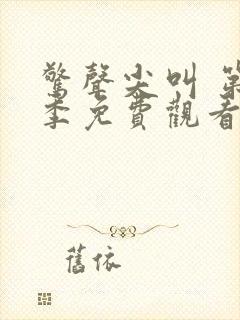 驚聲尖叫 第
季免費觀看
舊依